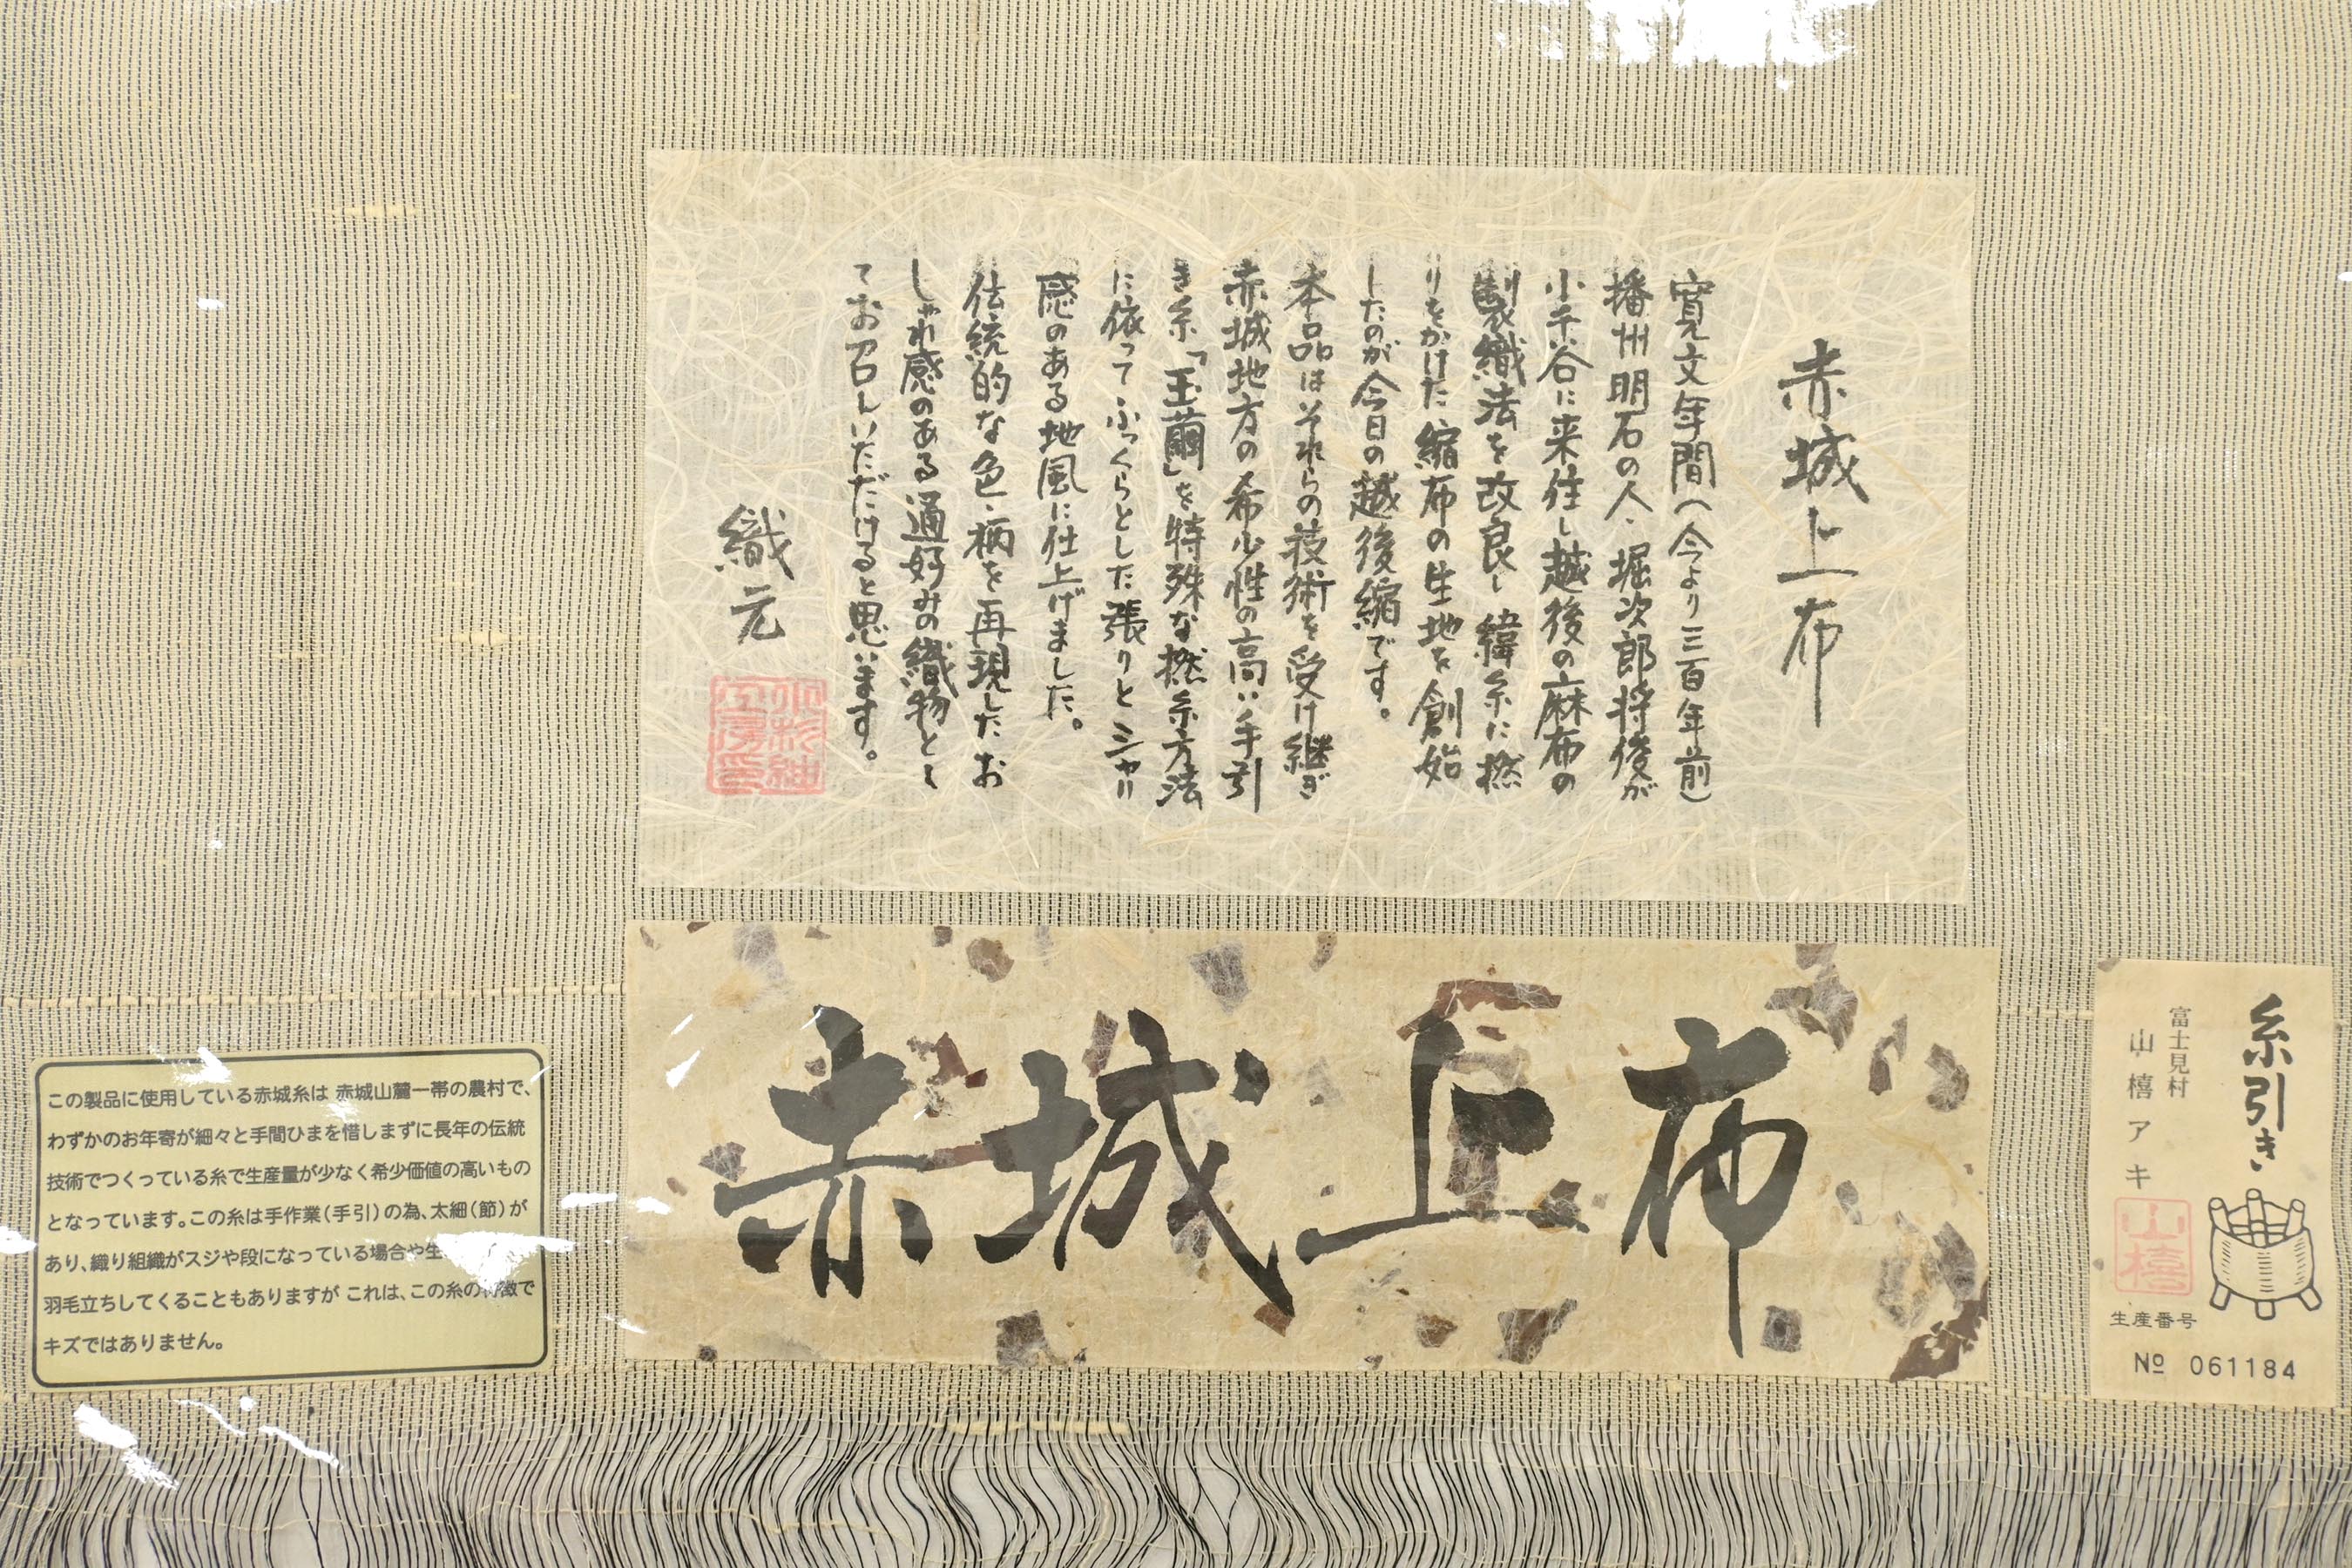 赤城上布
寛文年間(今より三百年前)
播州明石の人・堀次郎将俊が
小千谷に来住し越後の麻布の
製織法を改良し緯糸に撚
りをかけた縮布の生地を創始
したのが今日の越後縮です。
本品はそれらの技術を受け継ぎ
赤城地方の希少性の高い手引
き糸「玉繭」を特殊な撚糸方法
に依って、ふっくらとした張りとシャリ
感のある地風に仕上げました。
伝統的な色・柄を再現したお
しゃれ感のある通好みの織物とし
てお召しいただけると思います。
織元
赤城上布
この製品に使用している赤城糸は 赤城山麓一帯の農村で、
わずかのお年寄が細々と手間ひまを惜しまずに長年の伝統
技術でつくっている糸で生産量が少なく希少価値の高いもの
となっています。この糸は手作業(手引)の為、太細(節)が
あり、織り組織がスジや段になっている場合や生
羽毛立ちしてくることもありますが これは、この糸の特徴で
キズではありません。
糸引き
富士見村
山樰アキ
生産番号
№ 061184